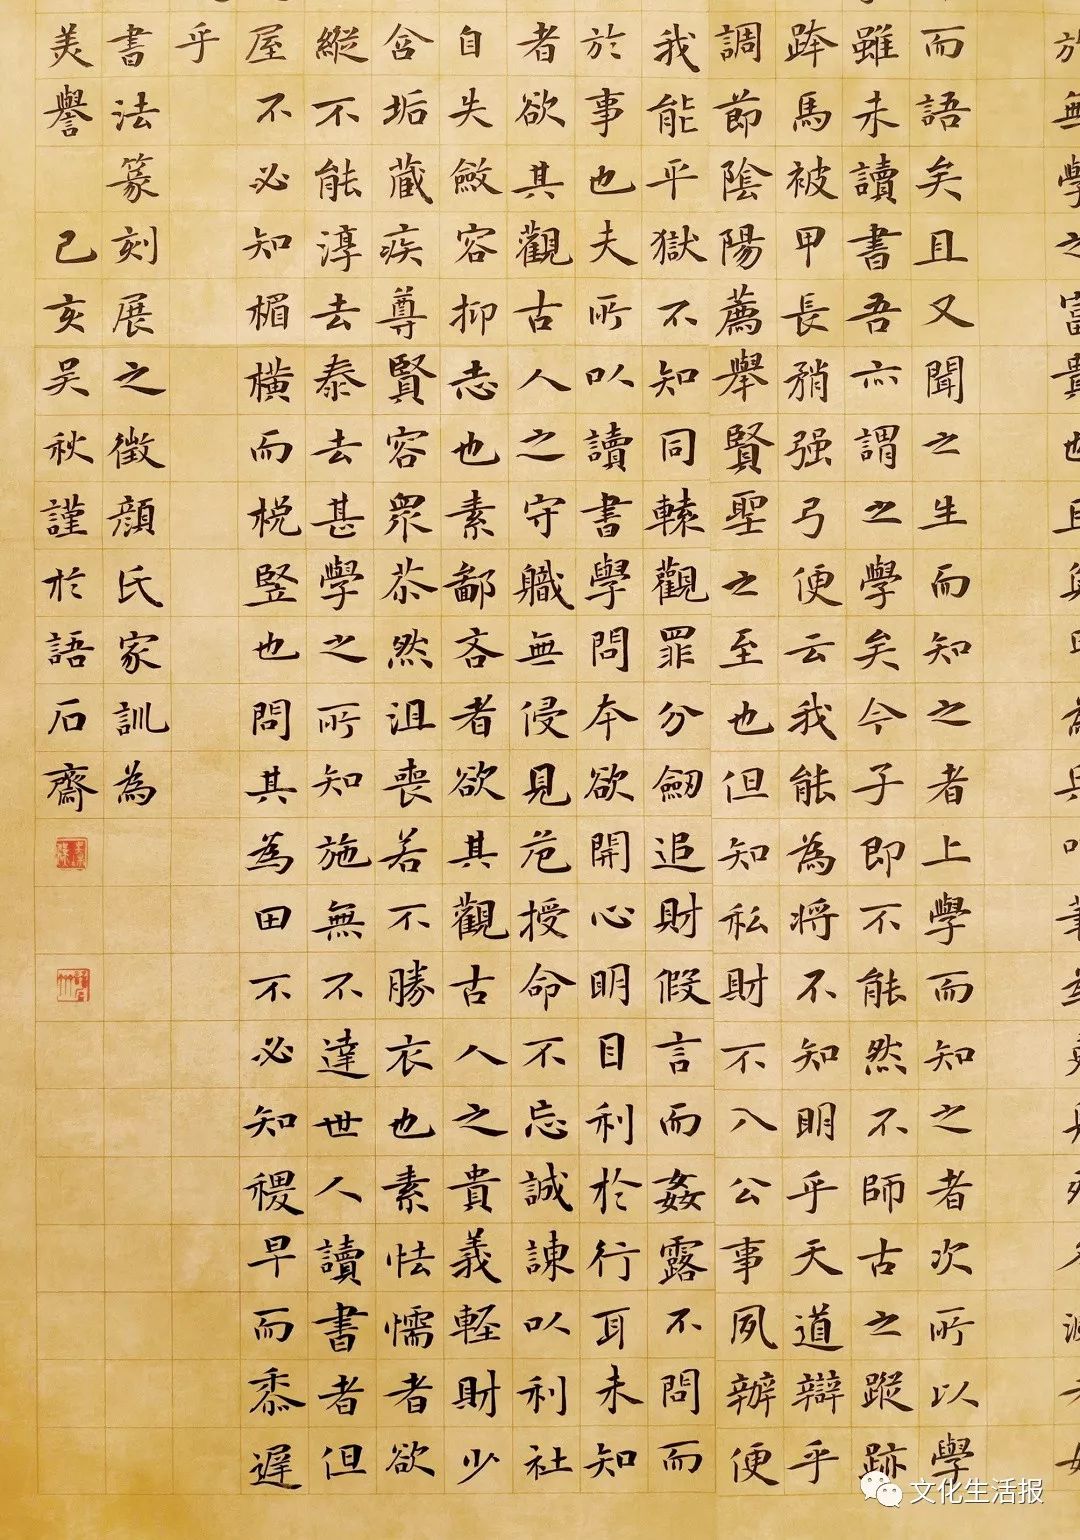 而語矣且又聞之生而知之者上學而知之者次所以學
雖未讀書吾亦謂之學矣今子即不能然不師古之蹤跡
跨馬被甲長矟强弓便云我能為將不知明乎天道辯乎
調節陰陽薦舉賢聖之至也但知私財不入公事夙辦便
我能平獄不知同轅觀罪分劒追財假言而姦露不問而
於事也夫所以讀書學問本欲開心明目利於行耳未知
者欲其觀古人之守職無侵見危授命不忘誠諫以利社
自失斂容抑志也素鄙吝者欲其觀古人之貴義輕財少
含垢藏疾尊賢容衆苶然沮喪若不勝衣也素怯懦者欲
縱不能淳去泰去甚學之所知施無不達世人讀書者但
屋不必知楣橫而梲豎也問其為田不必知稷早而黍遲
乎
書法篆刻展之徵顔氏家訓為
美譽 己亥吳秋謹於語石齋
文化生活报